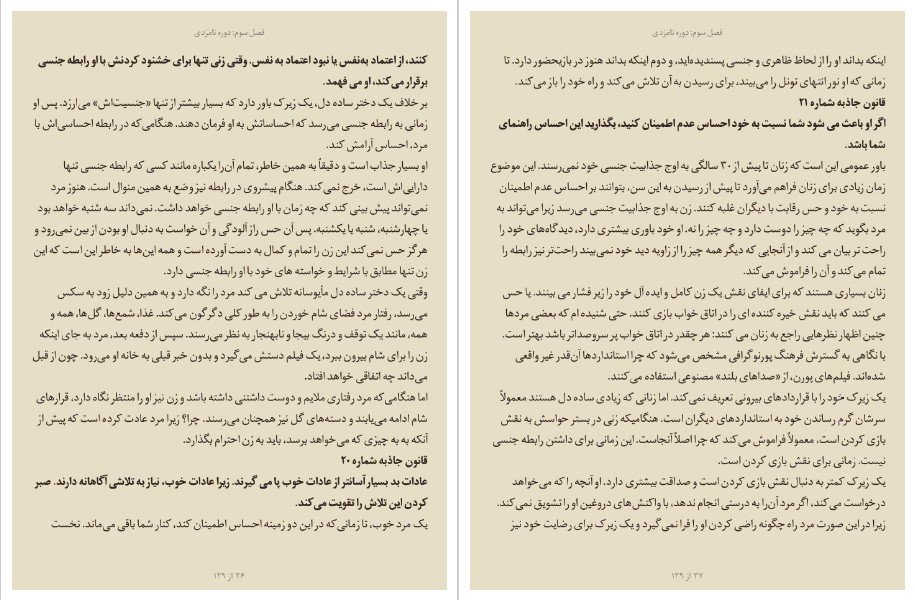 فصل سوم: دوره نامزدی
کنند، از اعتماد به‌نفس یا نبود اعتماد به نفس. وقتی زنی تنها برای خشنود کردنش با او رابطه جنسی
برقرار می‌کند، او می فهمد.
بر خلاف یک دختر ساده دل، یک زیرک باور دارد که بسیار بیشتر از تنها «جنسیت‌اش» می‌ارزد. پس او
زمانی به رابطه جنسی می‌رسد که احساساتش به او فرمان دهند. هنگامی‌که در رابطه احساسی‌اش با
مرد، احساس آرامش کند.
او بسیار جذاب است و دقیقاً به همین خاطر، تمام آن‌را یکباره مانند کسی که رابطه جنسی تنها
دارایی‌اش است، خرج نمی‌کند. هنگام پیشروی در رابطه نیز وضع به همین منوال است. هنوز مرد
نمی‌تواند پیش بینی کند که چه زمان با او رابطه جنسی خواهد داشت. نمی‌داند سه شنبه خواهد بود
یا چهارشنبه، شنبه یا یکشنبه. پس آن حس راز آلودگی و آن خواست به دنبال او بودن از بین نمی‌رود و
هرگز حس نمی کند این زن را تمام و کمال به دست آورده است و همه این‌ها به خاطر این است که این
زن تنها مطابق با شرایط و خواسته های خود با او رابطه جنسی دارد.
وقتی یک دختر ساده دل مأیوسانه تلاش می کند مرد را نگه دارد و به همین دلیل زود به سکس
می‌رسد، رفتار مرد فضای شام خوردن را به طور کلی دگرگون می‌کند. غذا، شمع‌ها، گل‌ها، همه و
همه، مانند یک توقف و درنگ بیجا و نابهنجار به نظر می‌رسند. سپس از دفعه بعد، مرد به جای اینکه
زن را برای شام بیرون ببرد، یک فیلم دستش می‌گیرد و بدون خبر قبلی به خانه او می‌رود. چون از قبل
می‌داند چه اتفاقی خواهد افتاد.
اما هنگامی‌که مرد رفتاری ملایم و دوست داشتنی داشته باشد و زن نیز او را منتظر نگاه دارد، قرارهای
شام ادامه می‌یابند و دسته‌های گل نیز همچنان می‌رسند. چرا؟ زیرا مرد عادت کرده است که پیش از
آنکه به به چیزی که می‌خواهد برسد، باید به زن احترام بگذارد.
قانون جاذبه شماره ۲۰
عادات بد بسیار آسانتر از عادات خوب پا می گیرند. زیرا عادات خوب، نیاز به تلاشی آگاهانه دارند. صبر
کردن این تلاش را تقویت می‌کند.
یک مرد خوب، تا زمانی‌که در این دو زمینه احساس اطمینان کند، کنار شما باقی می‌ماند. نخست
۳۶ از ۱۳۹
فصل سوم: دوره نامزدی
اینکه بداند او را از لحاظ ظاهری و جنسی پسندیده‌اید، و دوم اینکه بداند هنوز در بازیحضور دارد. تا
زمانی که او نور انتهای تونل را می‌بیند، برای رسیدن به آن تلاش می‌کند و راه خود را باز می‌کند.
قانون جاذبه شماره ۲۱
اگر او باعث می شود شما نسبت به خود احساس عدم اطمینان کنید، بگذارید این احساس راهنمای
شما باشد.
باور عمومی این است که زنان تا پیش از ۳۰ سالگی به اوج جذابیت جنسی خود نمی‌رسند. این موضوع
زمان زیادی برای زنان فراهم می‌آورد تا پیش از رسیدن به این سن، بتوانند بر احساس عدم اطمینان
نسبت به خود و حس رقابت با دیگران غلبه کنند. زن به اوج جذابیت جنسی می‌رسد زیرا می‌تواند به
مرد بگوید که چه چیز را دوست دارد و چه چیز را نه. او خود باوری بیشتری دارد، دیدگاه‌های خود را
راحت‌تر بیان می کند و از آنجایی که دیگر همه چیز را از زاویه دید خود نمی‌بیند راحت‌تر نیز رابطه را
تمام می‌کند و آن را فراموش می‌کند.
زنان بسیاری هستند که برای ایفای نقش یک زن کامل و ایده آل خود را زیر فشار می بینند. یا حس
می کنند که باید نقش خیره کننده ای را در اتاق خواب بازی کنند. حتی شنیده ام که بعضی مردها
چنین اظهار نظرهایی راجع به زنان می کنند: هر چقدر در اتاق خواب پر سروصداتر باشد بهتر است.
با نگاهی به گسترش فرهنگ پورنوگرافی مشخص می‌شود که چرا استانداردها آن‌قدر غیر واقعی
شده‌اند. فیلم‌های پورن، از «صداهای بلند» مصنوعی استفاده می‌کنند.
یک زیرک خود را با قراردادهای بیرونی تعریف نمی‌کند. اما زنانی که زیادی ساده دل هستند معمولاً
سرشان گرم رساندن خود به استانداردهای دیگران است. هنگامیکه زنی در بستر حواسش به نقش
بازی کردن است، معمولاً فراموش می‌کند که چرا اصلاً آنجاست. این زمانی برای داشتن رابطه جنسی
نیست. زمانی برای نقش بازی کردن است.
یک زیرک کمتر به دنبال نقش بازی کردن است و صداقت بیشتری دارد. او آنچه را که می‌خواهد
درخواست می‌کند، اگر مرد آن‌را به درستی انجام ندهد، با واکنش‌های دروغین او را تشویق نمی‌کند.
زیرا در این صورت مرد راه چگونه راضی کردن او را فرا نمی‌گیرد و یک زیرک برای رضایت خود نیز
۳۷ از ۱۳۹